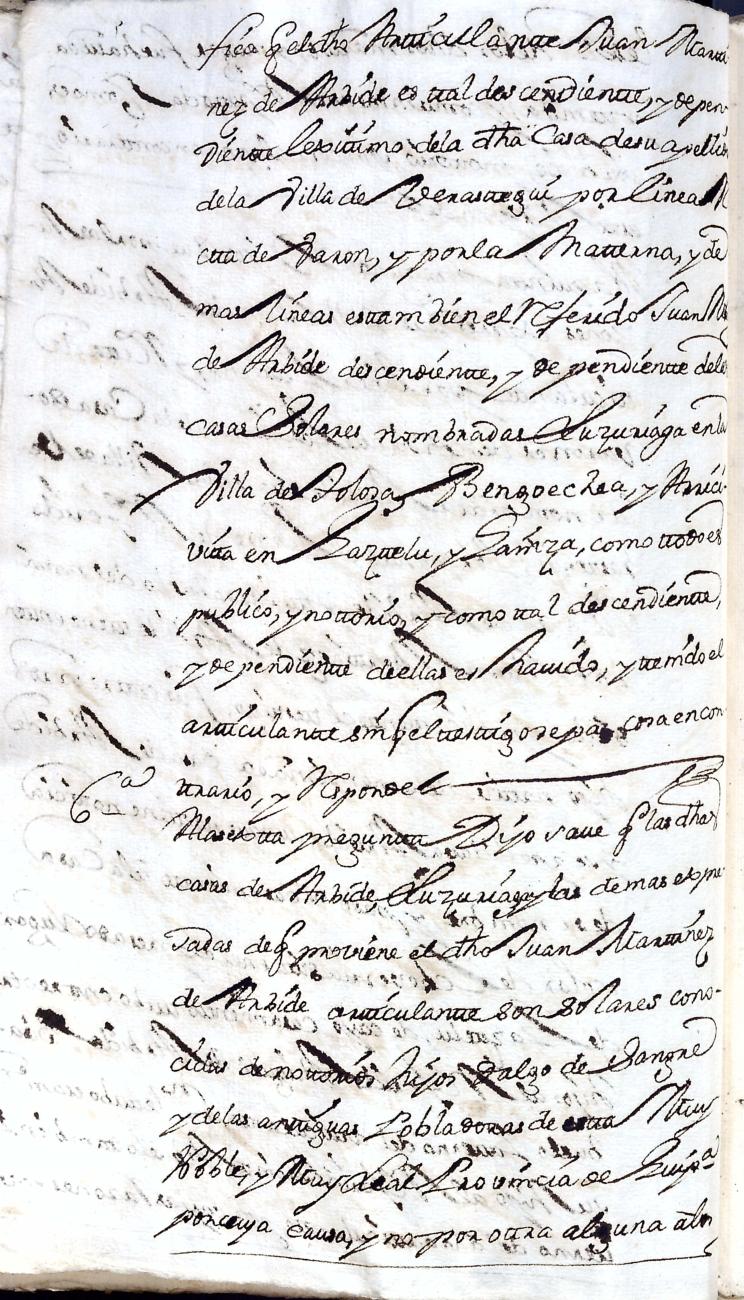 q el dho Artticulantte Juan Marti
nez de Arbide es ttal descendientte, y depen
dientte lexitimo dela dha Casa desu apelli
dela Villa de Verasttegui por linea
ctta de Varon, y por la Matterna, y de
mas lineas esttambien el Referido Juan
de Arbide descendientte, y dependientte dela
casas Solares nombradas Luzuriaga en la
Villa de Tolosa, Bengoechea, y Arici
vitta en Gaztelu, y Gainza, como ttodo es
publico, y nottorio, y como ttal descendientte,
y dependientte deellas es havido, y ttenido el
artticulantte sin q el ttesttigo sepa cosa en con
ttrario, y Responde
6a Alasextta preguntta Dijo save q las dhas
casas de Arbide, Luzuriaga y las demas expre
sadas de q proviene el dho Juan Martinez
de Arbide artticulantte son solares cono-
cidas de nottorios hijos dalgo de Sangre
y delas anttiguas Pobladoras de estta Muy
Noble, y Muy Leal Provincia de Guipa
por cuya causa, y no por ottra alguna